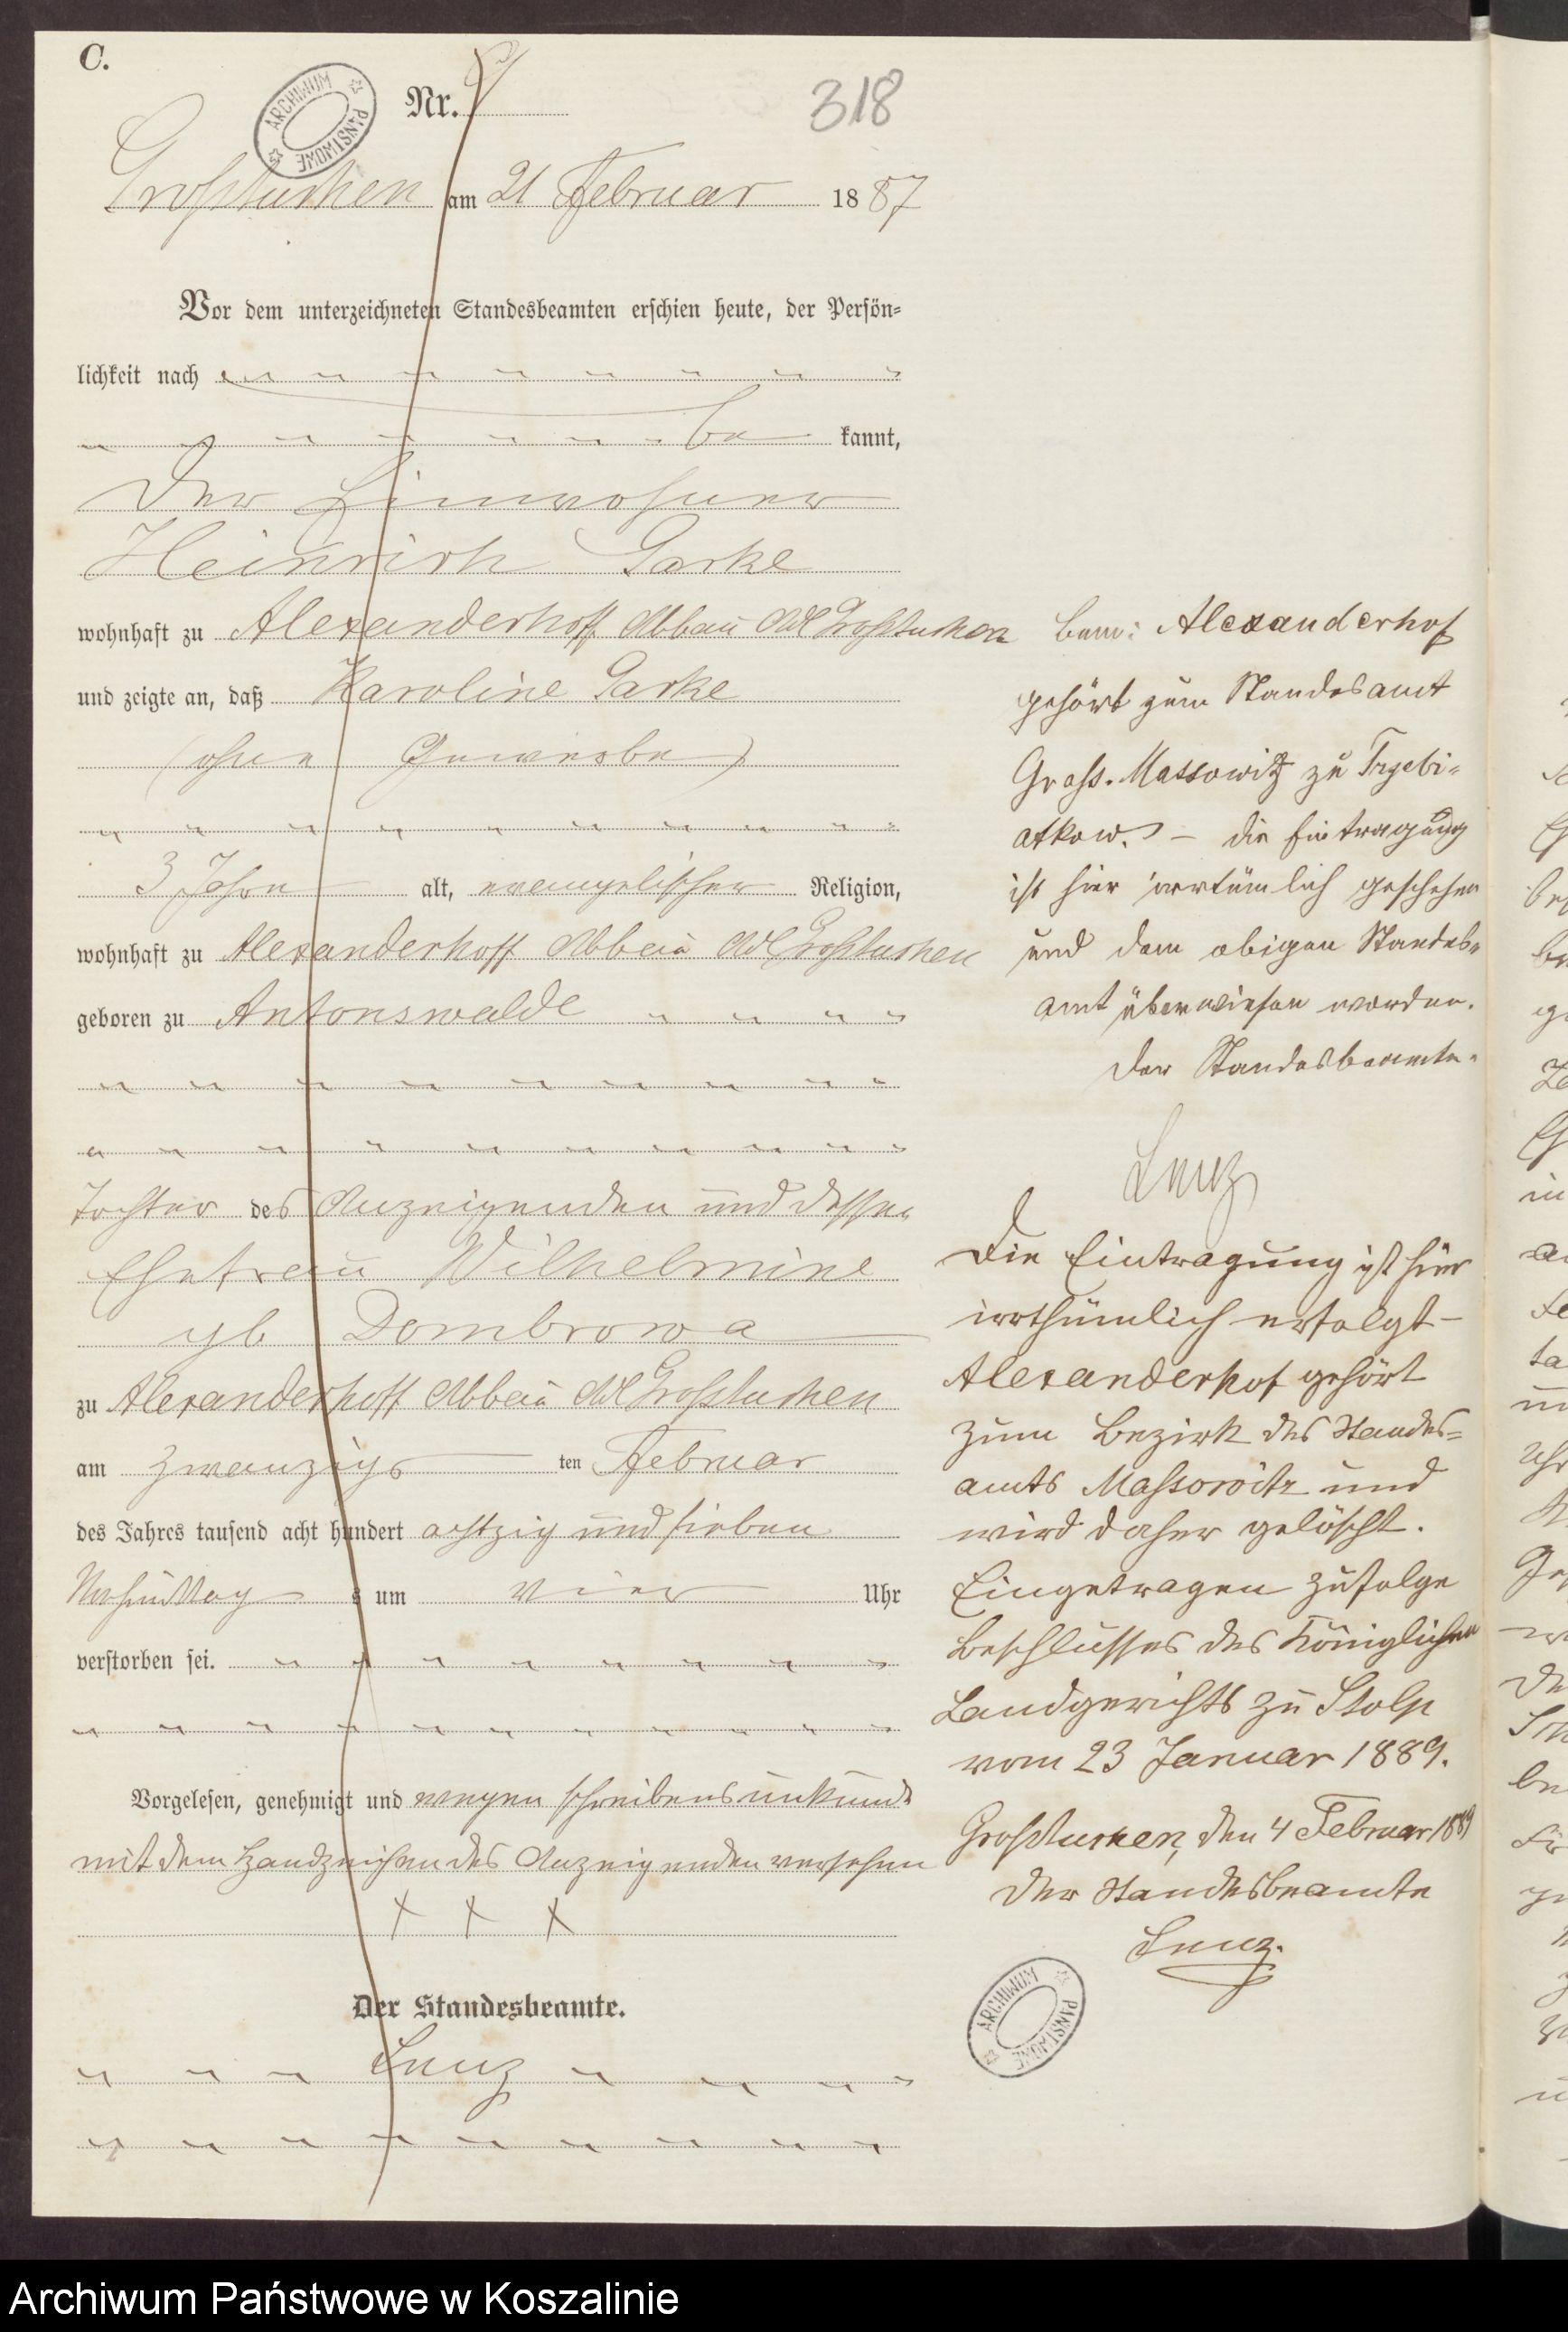 C.
ARCHIWUM PAŃSTWOWE
Nr. 9
318
Großtuchen am 21 Februar 1887
Vor dem unterzeichneten Standesbeamten erschien heute, der Persön=
lichkeit nach
be kannt,
der Einwohner
Heinrich Garke
wohnhaft zu Alexanderhoff Abbau Adl Großtuchen
und zeigte an, daß Karoline Garke
(ohne Gewerbe)
3 Jahre alt, evangelischer Religion,
wohnhaft zu Alexanderhoff Abbau Adl Großtuchen
geboren zu Antonswalde
Tochter des Anzeigenden und dessen
Ehefrau Wilhelmine
geb Dombrowa
zu Alexanderhoff Abbau Adl Großtuchen
am zwanzigs ten Februar
des Jahres tausend acht hundert achtzig und sieben
Nachmittag s um vier Uhr
verstorben sei.
Vorgelesen, genehmigt und wegen schreibensunkunde
mit dem Handzeichen des Anzeigenden versehen
X X X
Der Standesbeamte.
Lenz
Bem: Alexanderhof
gehört zum Standesamt
Groß. Massowitz zu Trzebi=
atkow. – die Eintragung
ist hier irrtümlich geschehen
und dem obigen Standes=
amt überwiesen worden.
Der Standesbeamte.
Lenz
Die Eintragung ist hier
irrthümlich erfolgt –
Alexanderhof gehört
zum Bezirk des Standes=
amts Massowitz und
wird daher gelöscht.
Eingetragen zufolge
Beschlusses des Königlichen
Landgerichts zu Stolp
vom 23 Januar 1889.
Großtuchen, den 4 Februar 1889
Der Standesbeamte
Lenz.
ARCHIWUM PAŃSTWOWE
Archiwum Państwowe w Koszalinie